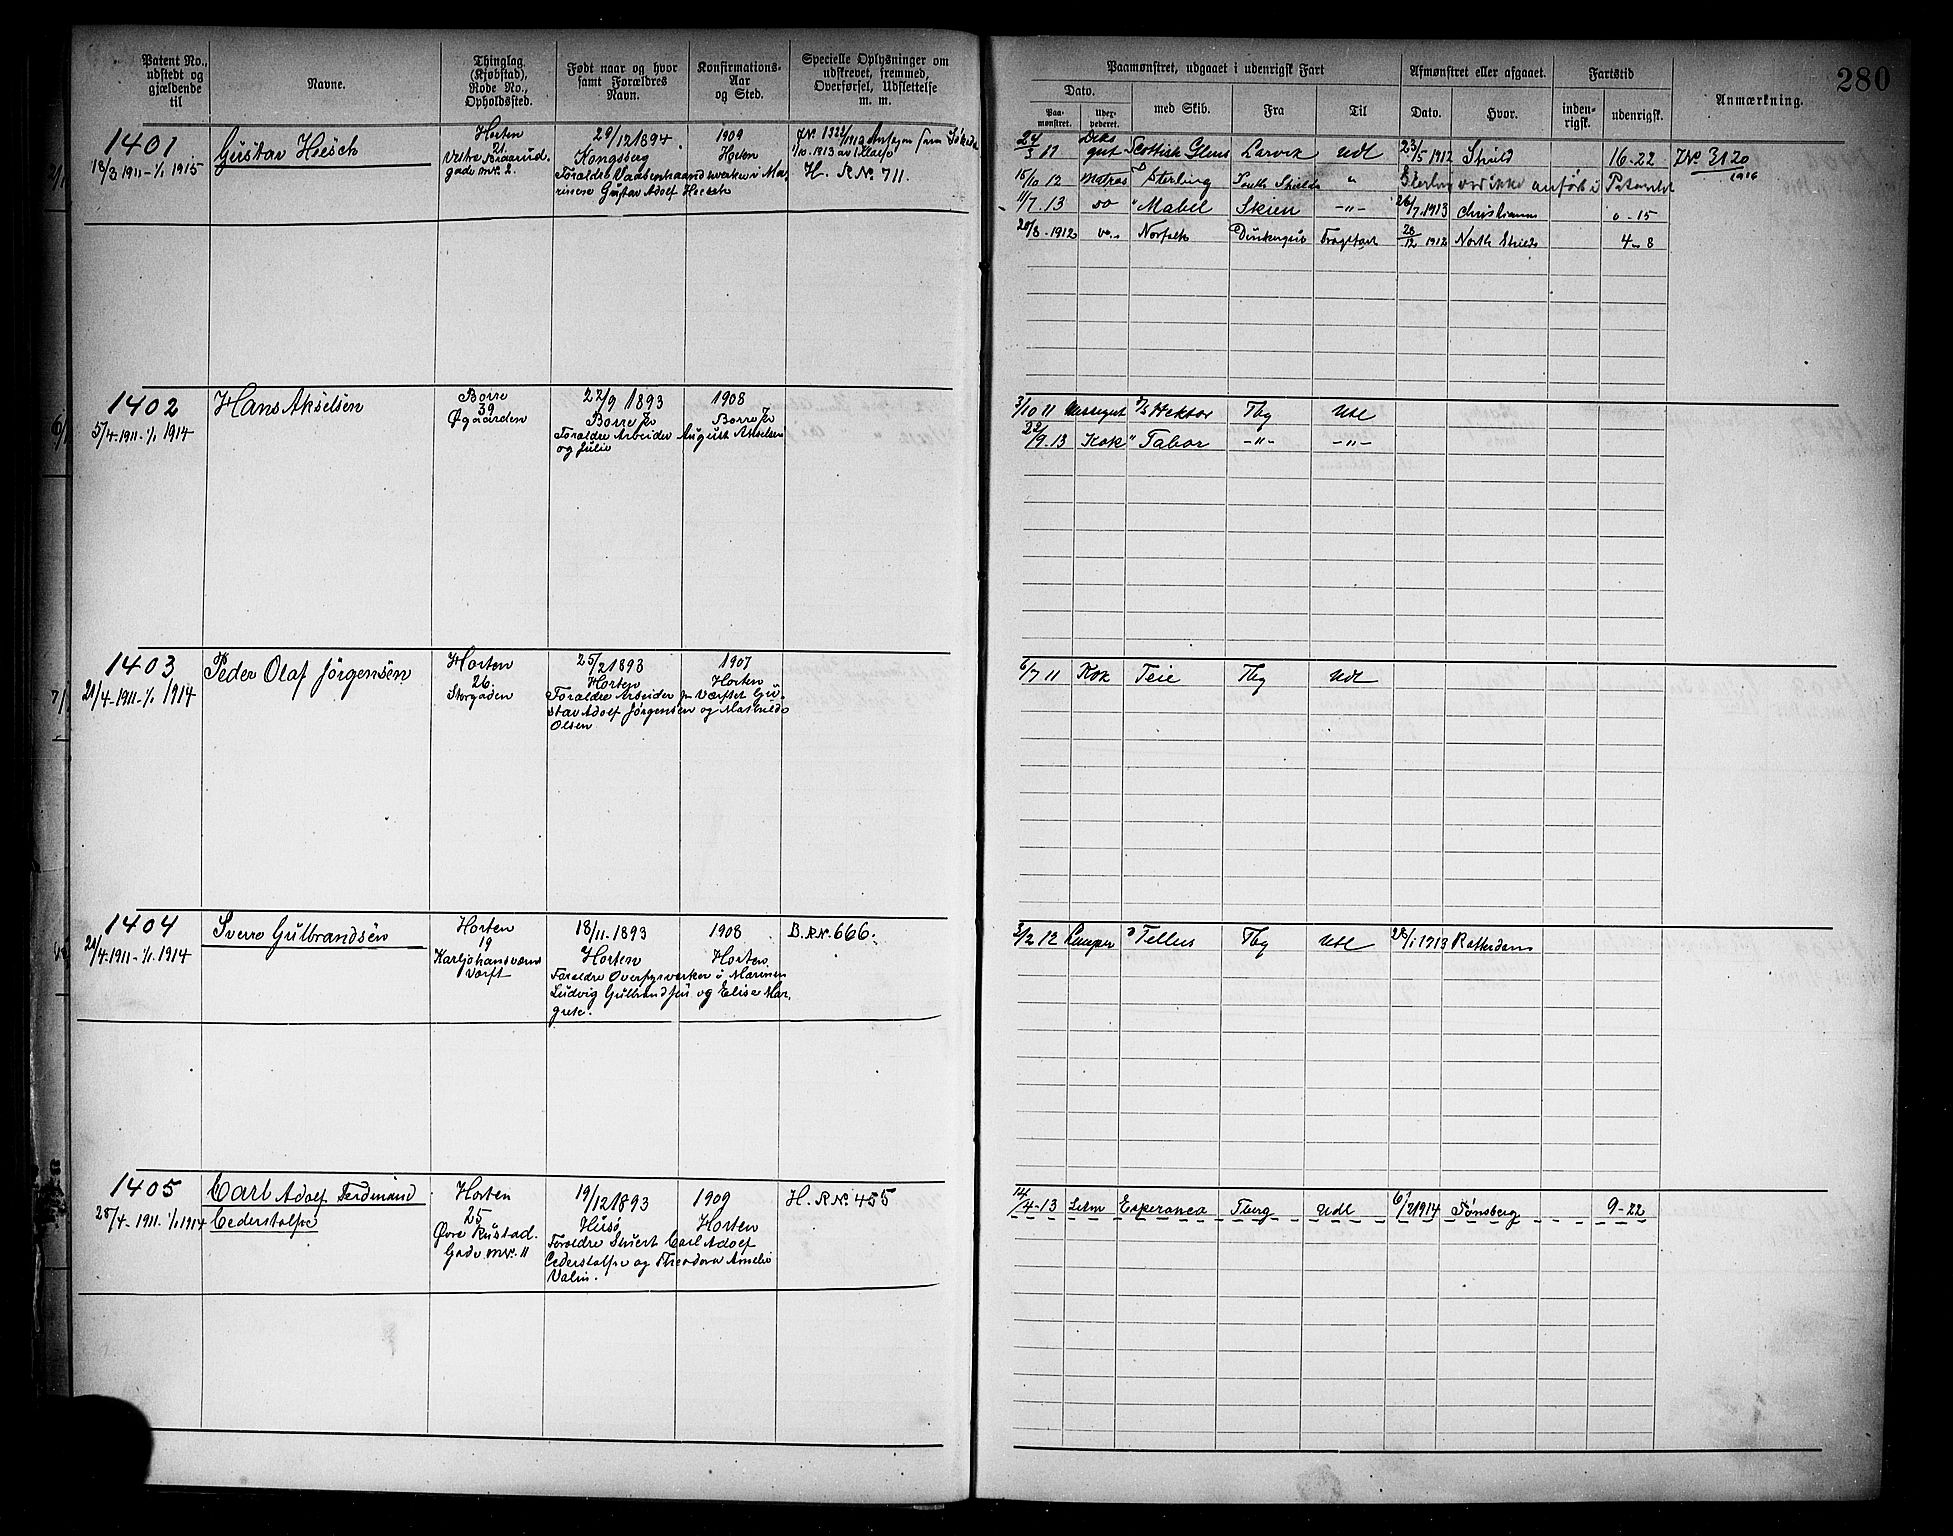 Patent No., udstedt og gjældende til
Navne.
Thinglag (Kjøbstad), Rode No., Opholdssted.
Født naar og hvor samt Forældres Navn.
Konfirmations-Aar og Sted.
Specielle Oplysninger om udskrevet, fremmed, Overførsel, Udslettelse m. m.
Paamønstret, udgaaet i udenrigsk Fart
Afmønstret eller afgaaet.
Fartstid
Anmærkning.
280
Dato.
Paa-mønstret.
med Skib.
Fra
Til
Dato.
Hvor.
inden-rigsk.
udenrigsk.
1401
18/3 1911 - 1/1 1915
Gustav Hiesch
Horten
21
gade nr. 2.
29/12 1894.
Kongsberg
1909
Horten
H. R No. 711.
24/3 11
Scottish Glens
Larvik
Udl
23/5 1912
Shield
16-22
J No. 3120
1916
15/10 12
Matros
Sterling
South Shields
"
11/7. 13
do
" Mabel
Skien
-"-
26/7 1913
Christiania
0-15
20/8 - 1912
Norfolk
Fragtfart
28/12 1912
North Shields
4 - 8
1402
5/4 - 1911 - 1/1 1914
Hans Akselsen
Borre
39
Øgaarden
22/9 1893
Borre
Forældre Arbeider August Akselsen
og Julie
1908
Borre
3/10 11
Hektor
Tbg
Udl
22/9. 13
Kok
" Tabor
-"-
-"-
1403
21/4 - 1911 - 1/1 1914
Peder Olaf Jörgensen
Horten
26
Storgaden
25/2 1893
Horten
Forældre Arbeider Værftet Gu-
stav Adolf Jørgensen og Mathilde
Olsen
1907
Horten
6/7 11
Kok
Teie
Tbg
Udl
1404
21/4 - 1911 - 1/1 1914
Sverre Gulbrandsen
Horten
19
Karljohansværns
Værft
18/11. 1893
Horten
Forældre Overfyrverker i Marinen
Ludvig Gulbrandsen og Elise Mar-
grete.
1908
Horten
B. R No. 666.
3/2 12
Lemper
Tellus
Tbg
Udl
28/1 1913
Rotterdam
1405
28/4 - 1911 - 1/1 1914
Carl Adolf Ferdinand
Cederstolpe
Horten
25
Øvre Rustad.
Gade nr. 11
19/12 1893
Husø
Forældre Stuert Carl Adolf
Cederstolpe og Theodora Amelie
1909
Horten
H. R No. 455
14/4 - 13
Letm
Esperanca
Tbrg
Udl
Tønsberg
9-22